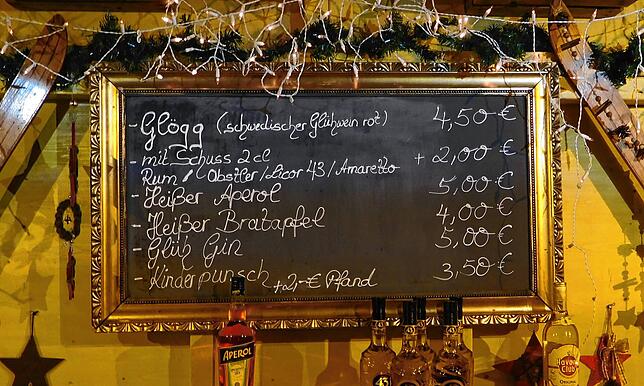 - Glögg (schwedischer Glühwein rot) 4,50 €
- mit Schuss 2 cl + 2,00 €
Rum / Obstler / Licor 43 / Amaretto
- Heißer Aperol 5,00 €
- Heißer Bratapfel 4,00 €
- Glüh Gin 5,00 €
- Kinderpunsch 3,50 €
+ 2,-€ Pfand
APEROL
43
Havana
Club